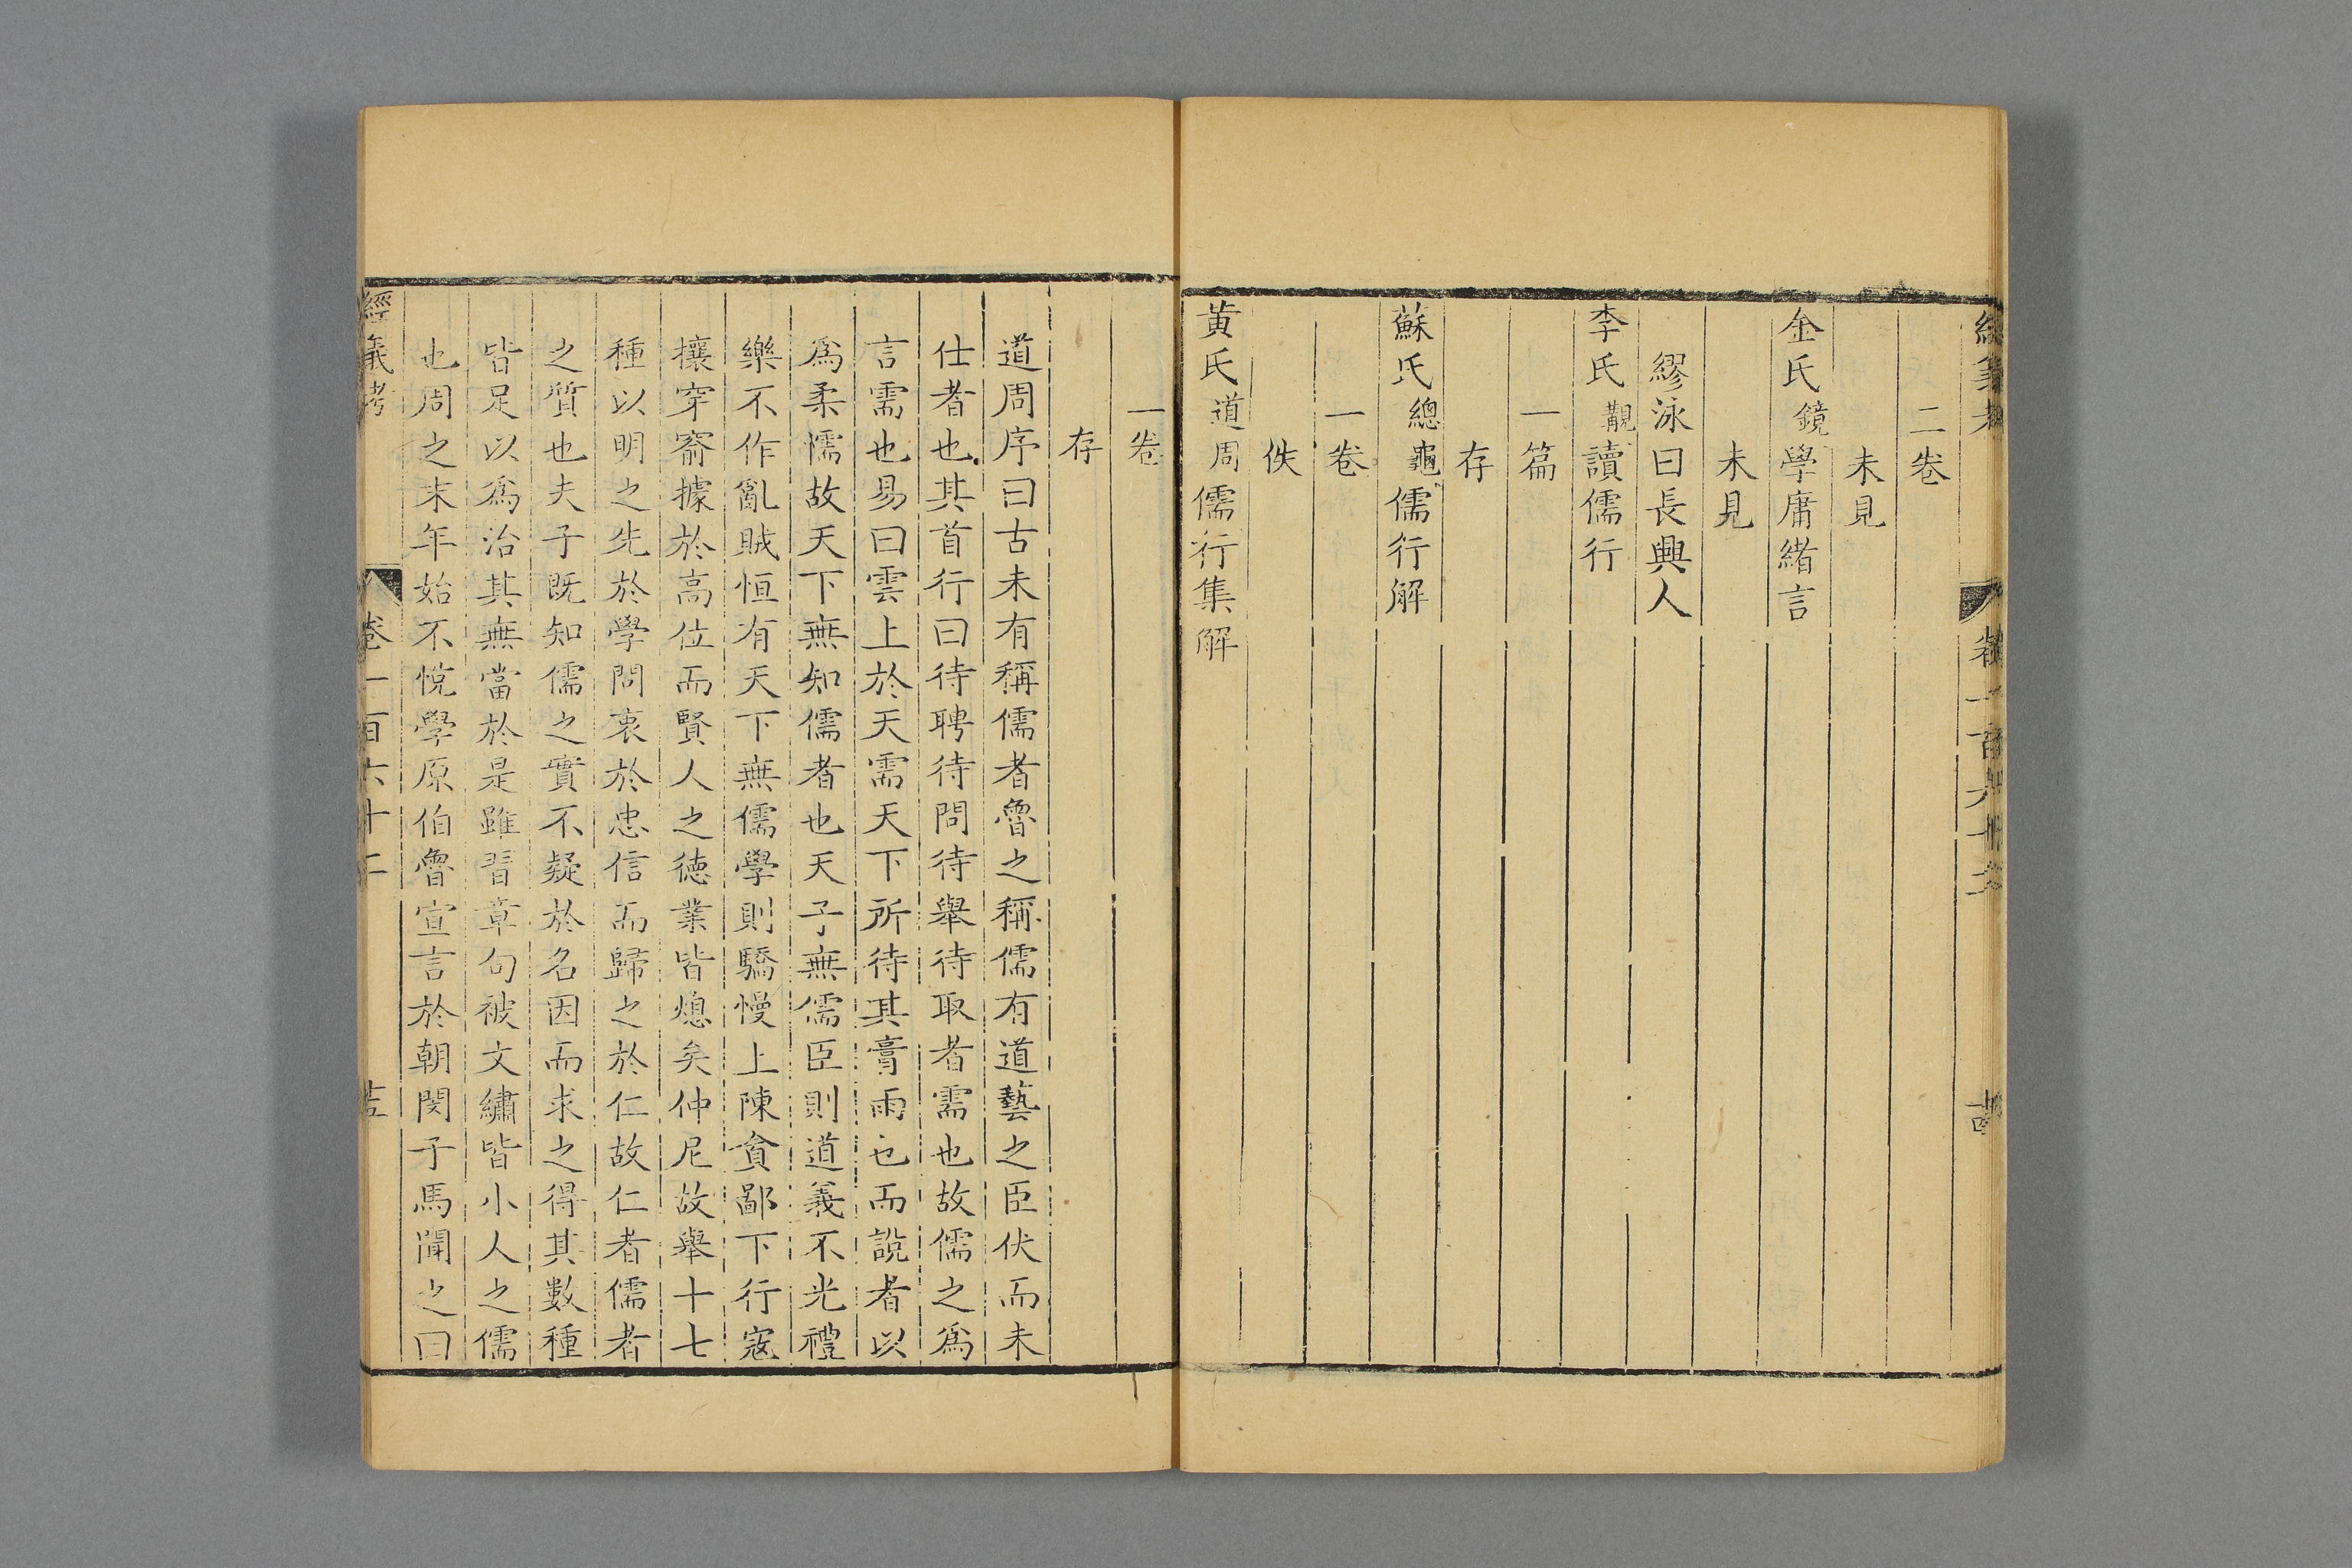 二卷
未見
金氏鏡學庸緒言
未見
繆泳曰長興人
李氏覯讀儒行
一篇
存
蘇氏總龜儒行解
一卷
佚
黄氏道周儒行集解
一卷
存
道周序曰古未有稱儒者魯之稱儒有道藝之臣伏而未
仕者也其首行曰待聘待問待舉待取者需也故儒之爲
言需也易曰雲上於天需天下所待其膏雨也而說者以
爲柔懦故天下無知儒者也天子無儒臣則道義不光禮
樂不作亂賊恒有天下無儒學則驕慢上陳貪鄙下行寇
攘穿窬據於高位而賢人之徳業皆熄矣仲尼故舉十七
種以明之先於學問衷於忠信而歸之於仁故仁者儒者
之質也夫子既知儒之實不疑於名因而求之得其數種
皆足以爲治其無當於是雖習章句被文繡皆小人之儒
也周之末年始不悅學原伯魯宣言於朝閔子馬聞之曰
經義考 卷一百六十二